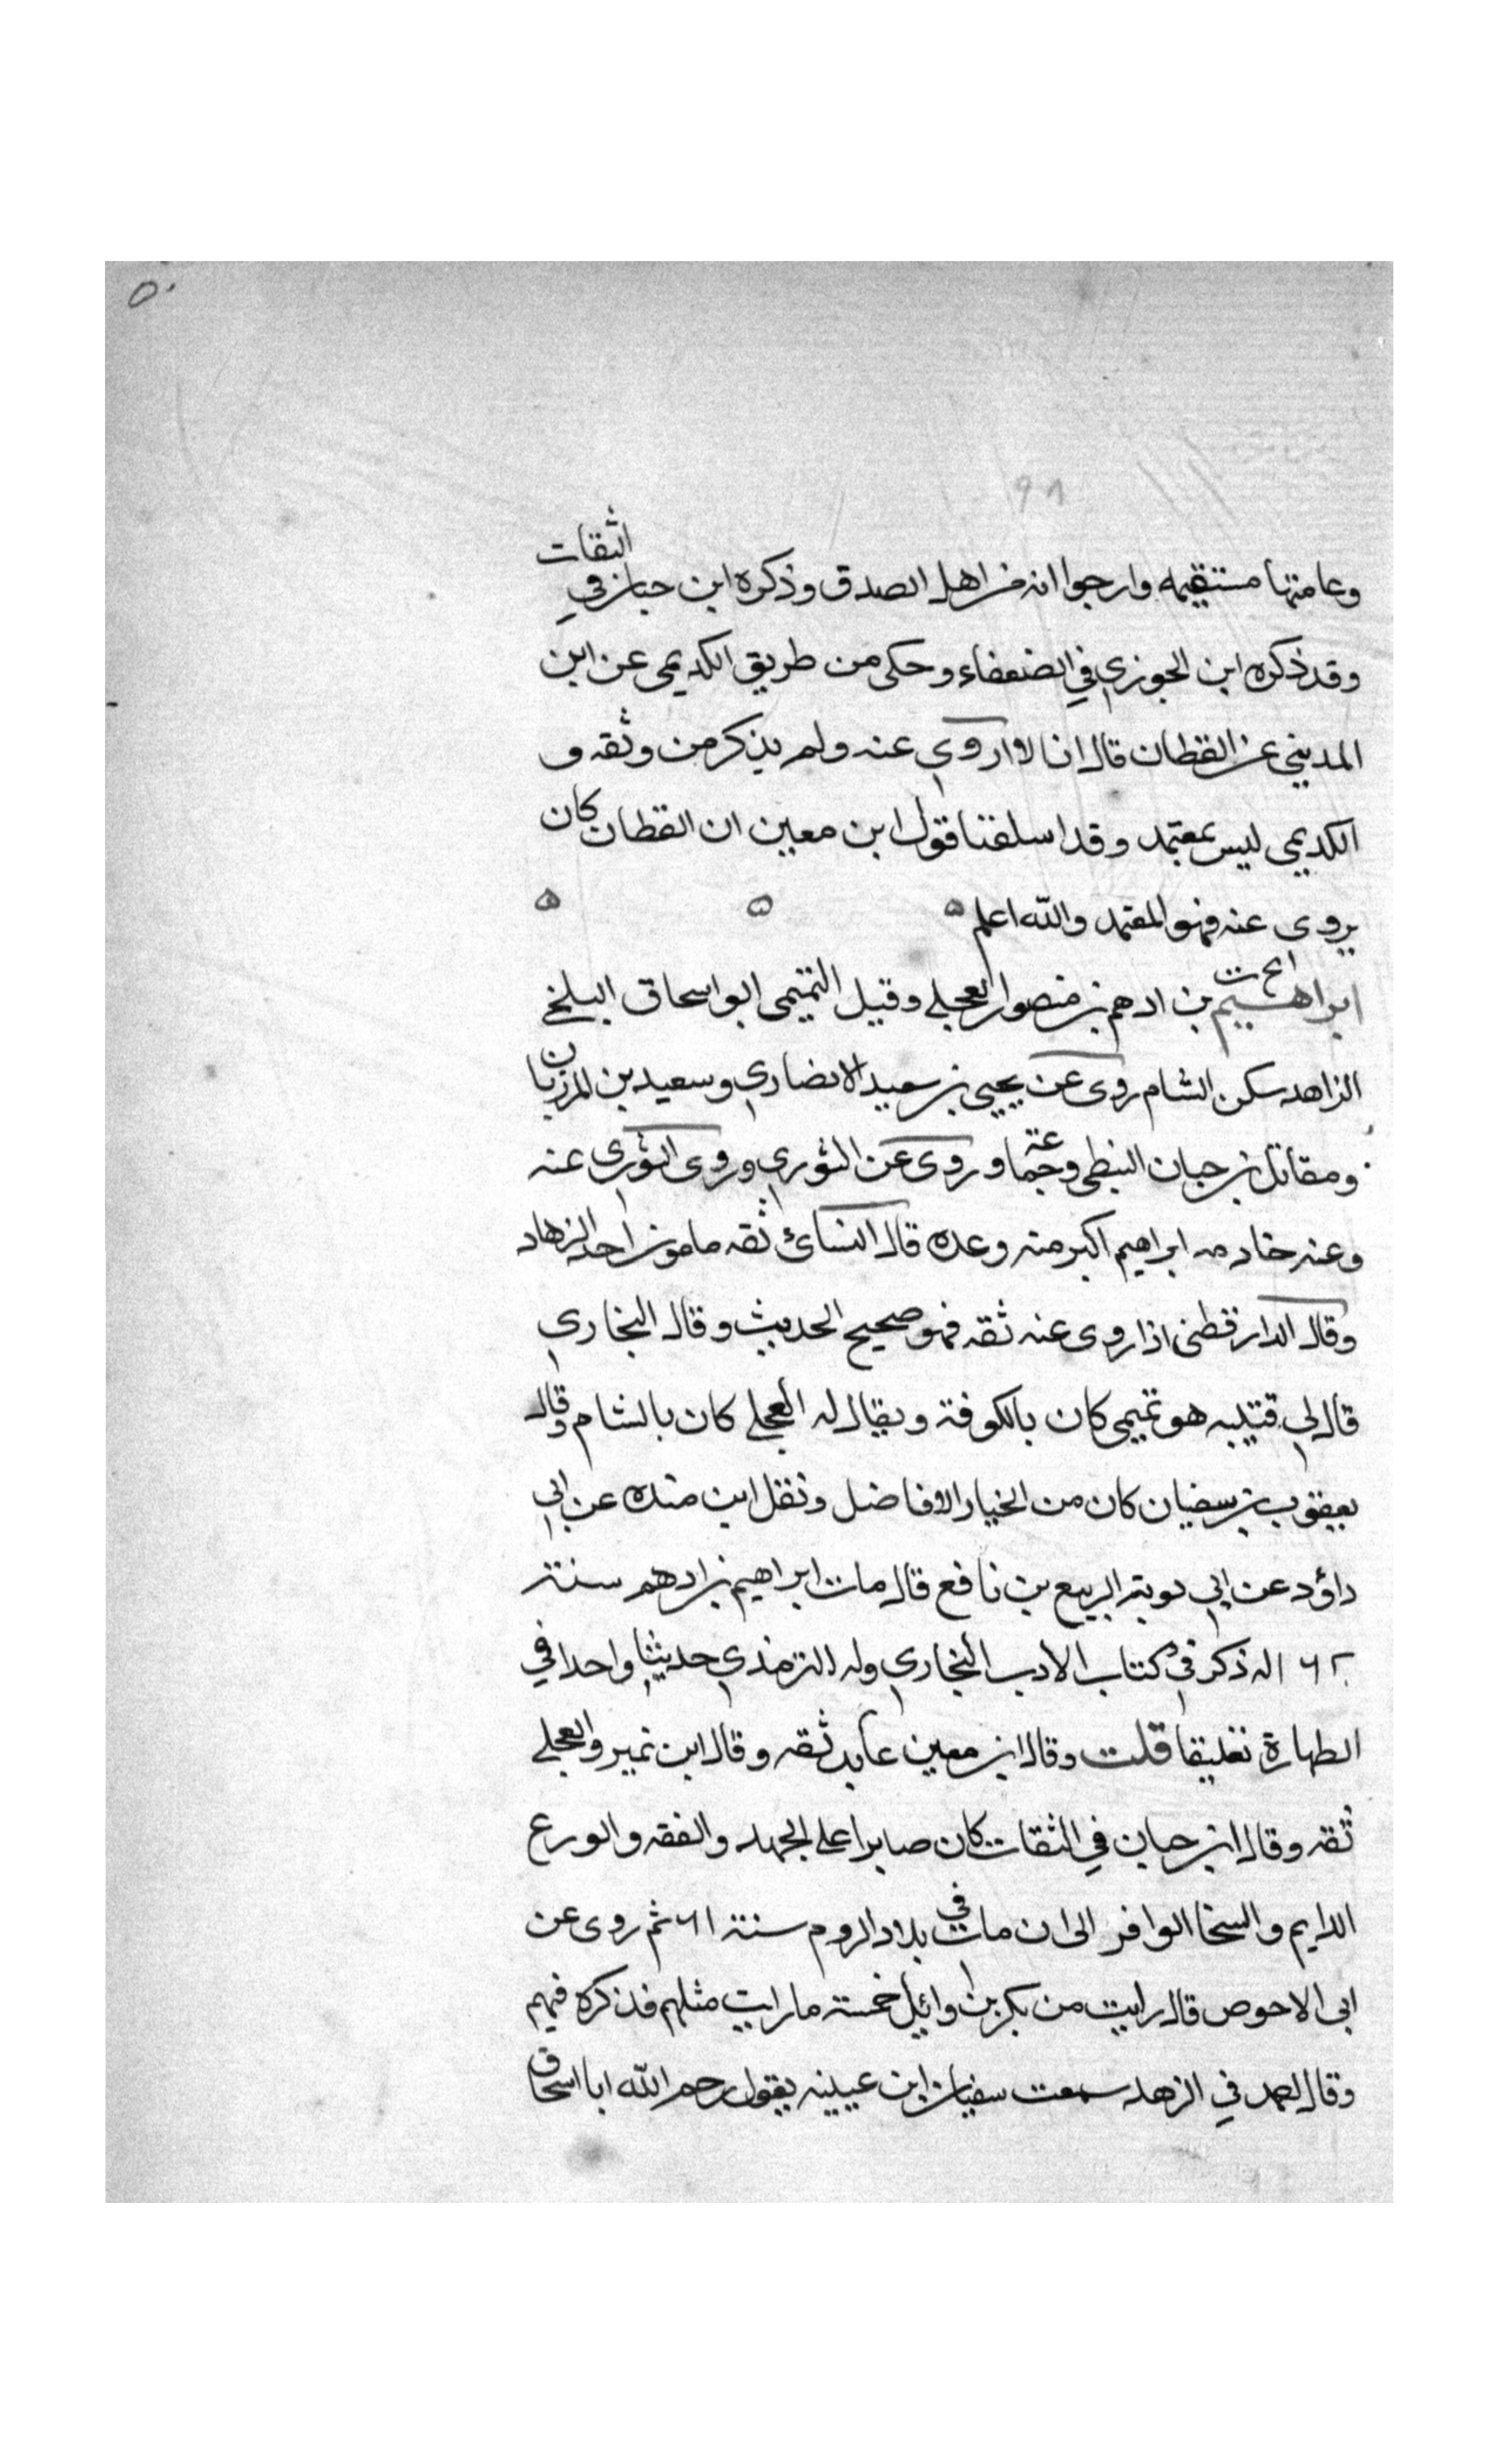 ٥٠
٩٨
وعامتها مستقيمه وارجوا انه من اهل الصدق وذكره ابن حبان في الثقات
وقد ذكره ابن الجوزي في الضعفاء وحكى من طريق الكديمي عن ابن
المديني عن القطان قال انا لا اروي عنه ولم يذكر من وثقه و
الكديمي ليس بمعتمد وقد اسلفنا قول ابن معين ان القطان كان
يروى عنه فهو المعتمد والله اعلم ه ه ه
ابراهيم بن ادهم بن منصور العجلي وقيل التميمي ابو اسحاق البلخي
الزاهد سكن الشام روى عن يحيى بن سعيد الانصاري وسعيد بن المرزبان
ومقاتل بن حبان النبطي وجماعة وروى عن الثوري وروى الثوري عنه
وعنه خادمه ابراهيم اكبر منه وعده قال النسائ ثقه مامون احد الزهاد
وقال الدارقطنى اذا روى عنه ثقه فهو صحيح الحديث وقال البخاري
قال لي قتيبه هو تميمي كان بالكوفة ويقال له العجلي كان بالشام وقال
يعقوب بن سفيان كان من الخيار الافاضل ونقل ابن منده عن ابي
داؤد عن ابي توبة الربيع بن نافع قال مات ابراهيم بن ادهم سنة
١٦٢ له ذكر في كتاب الادب البخاري وله الترمذي حديثا واحدا في
الطهارة تعليقا قلت وقال ابن معين عابد ثقه وقال ابن نمير والعجلي
ثقه وقال ابن حبان في الثقات كان صابرا على الجهد والفقه والورع
الدايم والسخا الوافر الى ان مات في بلاد الروم سنة ١٦١ ثم روى عن
ابى الاحوص قال رايت من بكر بن وائيل خمسة ما رايت مثلهم فذكره فيهم
وقال احمد في الزهد سمعت سفيان ابن عيينه يقول رحم الله ابا اسحاق